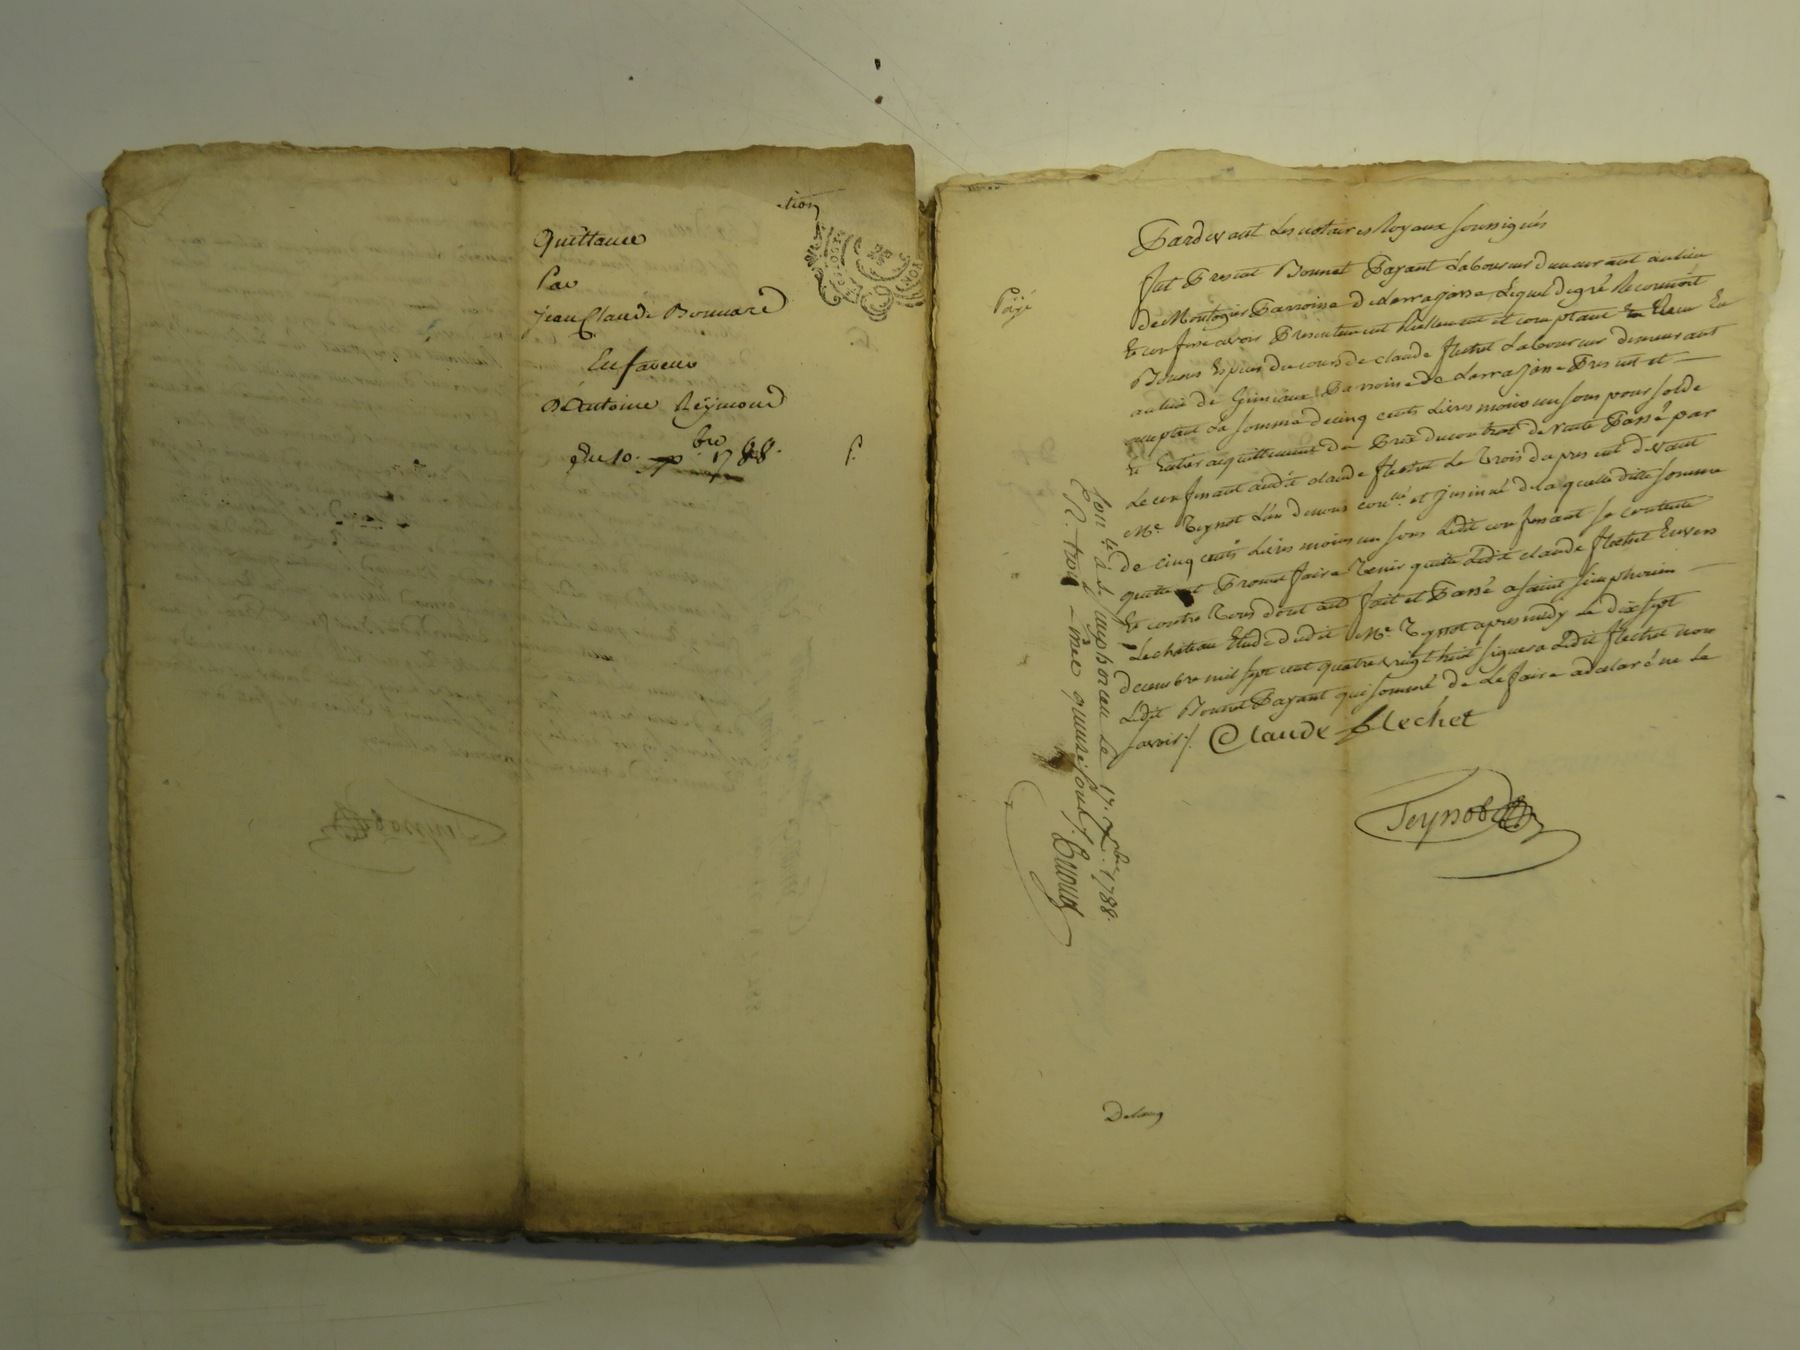 Quittance
Par
jean Claude Bonnard
En faveur
D'Antoine Reÿmond
Du 10. bre 1788.
Payé
Pardevant Les notaires Royaux soussignés
fut Present Bonnet Payant Laboureur demeurant au lieu
de Montagier Parroisse de Larrajasse Lequel de gré Reconnoit
Et confesse avoir Presentement Reellement et comptant Receu En
Bonnes Especes du cours de claude flechet Laboureur demeurant
au lieu de Gimiaux Parroisse de Larrajasse Present et
acceptant La somme de cinq cents Livres moins un sous pour solde
et Entier acquittement du Prix du contrat de vente Passé par
Le confessant audit claude flechet Le trois du present devant
Me. Teyssot L'un de nous et de laquelle ditte somme
de cinq cents Livres moins un sous Ledit confessant se contente
quitte et Promet faire tenir quitte Ledit claude flechet Envers
Et contre tous dont acte fait et Passé a saint simphorien
Le chateau Etude dudit Me. Teyssot apres midy Le dix sept
decembre mil sept cent quatre vingt huit signera Ledit flechet non
Ledit Bonnet Payant qui sommé de Le faire a declaré ne Le
savoir /. Claude flechet
Teyssot
Con.lé à St. simphorien Le 17. Xbre. 1788.